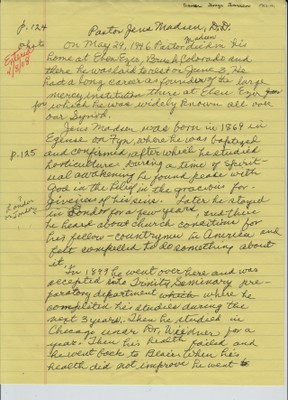 p. 124
Pastor Jens Madsen, D.D.
photo
Entered
4/8/03
On May 29, 1946 Pastor Madsen died in his
home at Eben Ezer, Brush, Colorado and
there he was laid to rest on June 3. He
had a long career as founder of the large
mercy institution there at Eben Ezer
for which he was widely known all over
our Synod.
Jens Madsen was born in 1869 in
on Fyn, where he was baptized
p. 125
and confirmed, after which he studied
horticulture. During a time of spirit-
ual awakening he found peace with
God in the belief in the gracious for-
giveness of his sins. Later he stayed
in London for a few years, and there
he heard about church conditions for
his fellow-countrymen in America and
felt compelled to do something about
it.
In 1899 he went over here and was
accepted into Trinity Seminary pre-
paratory department which while he
completed his studies during the
next 3 years. Then he studied in
Chicago under Dr. Weidner for a
year. Then his health failed and
he went back to Blair. When his
health did not improve he went to